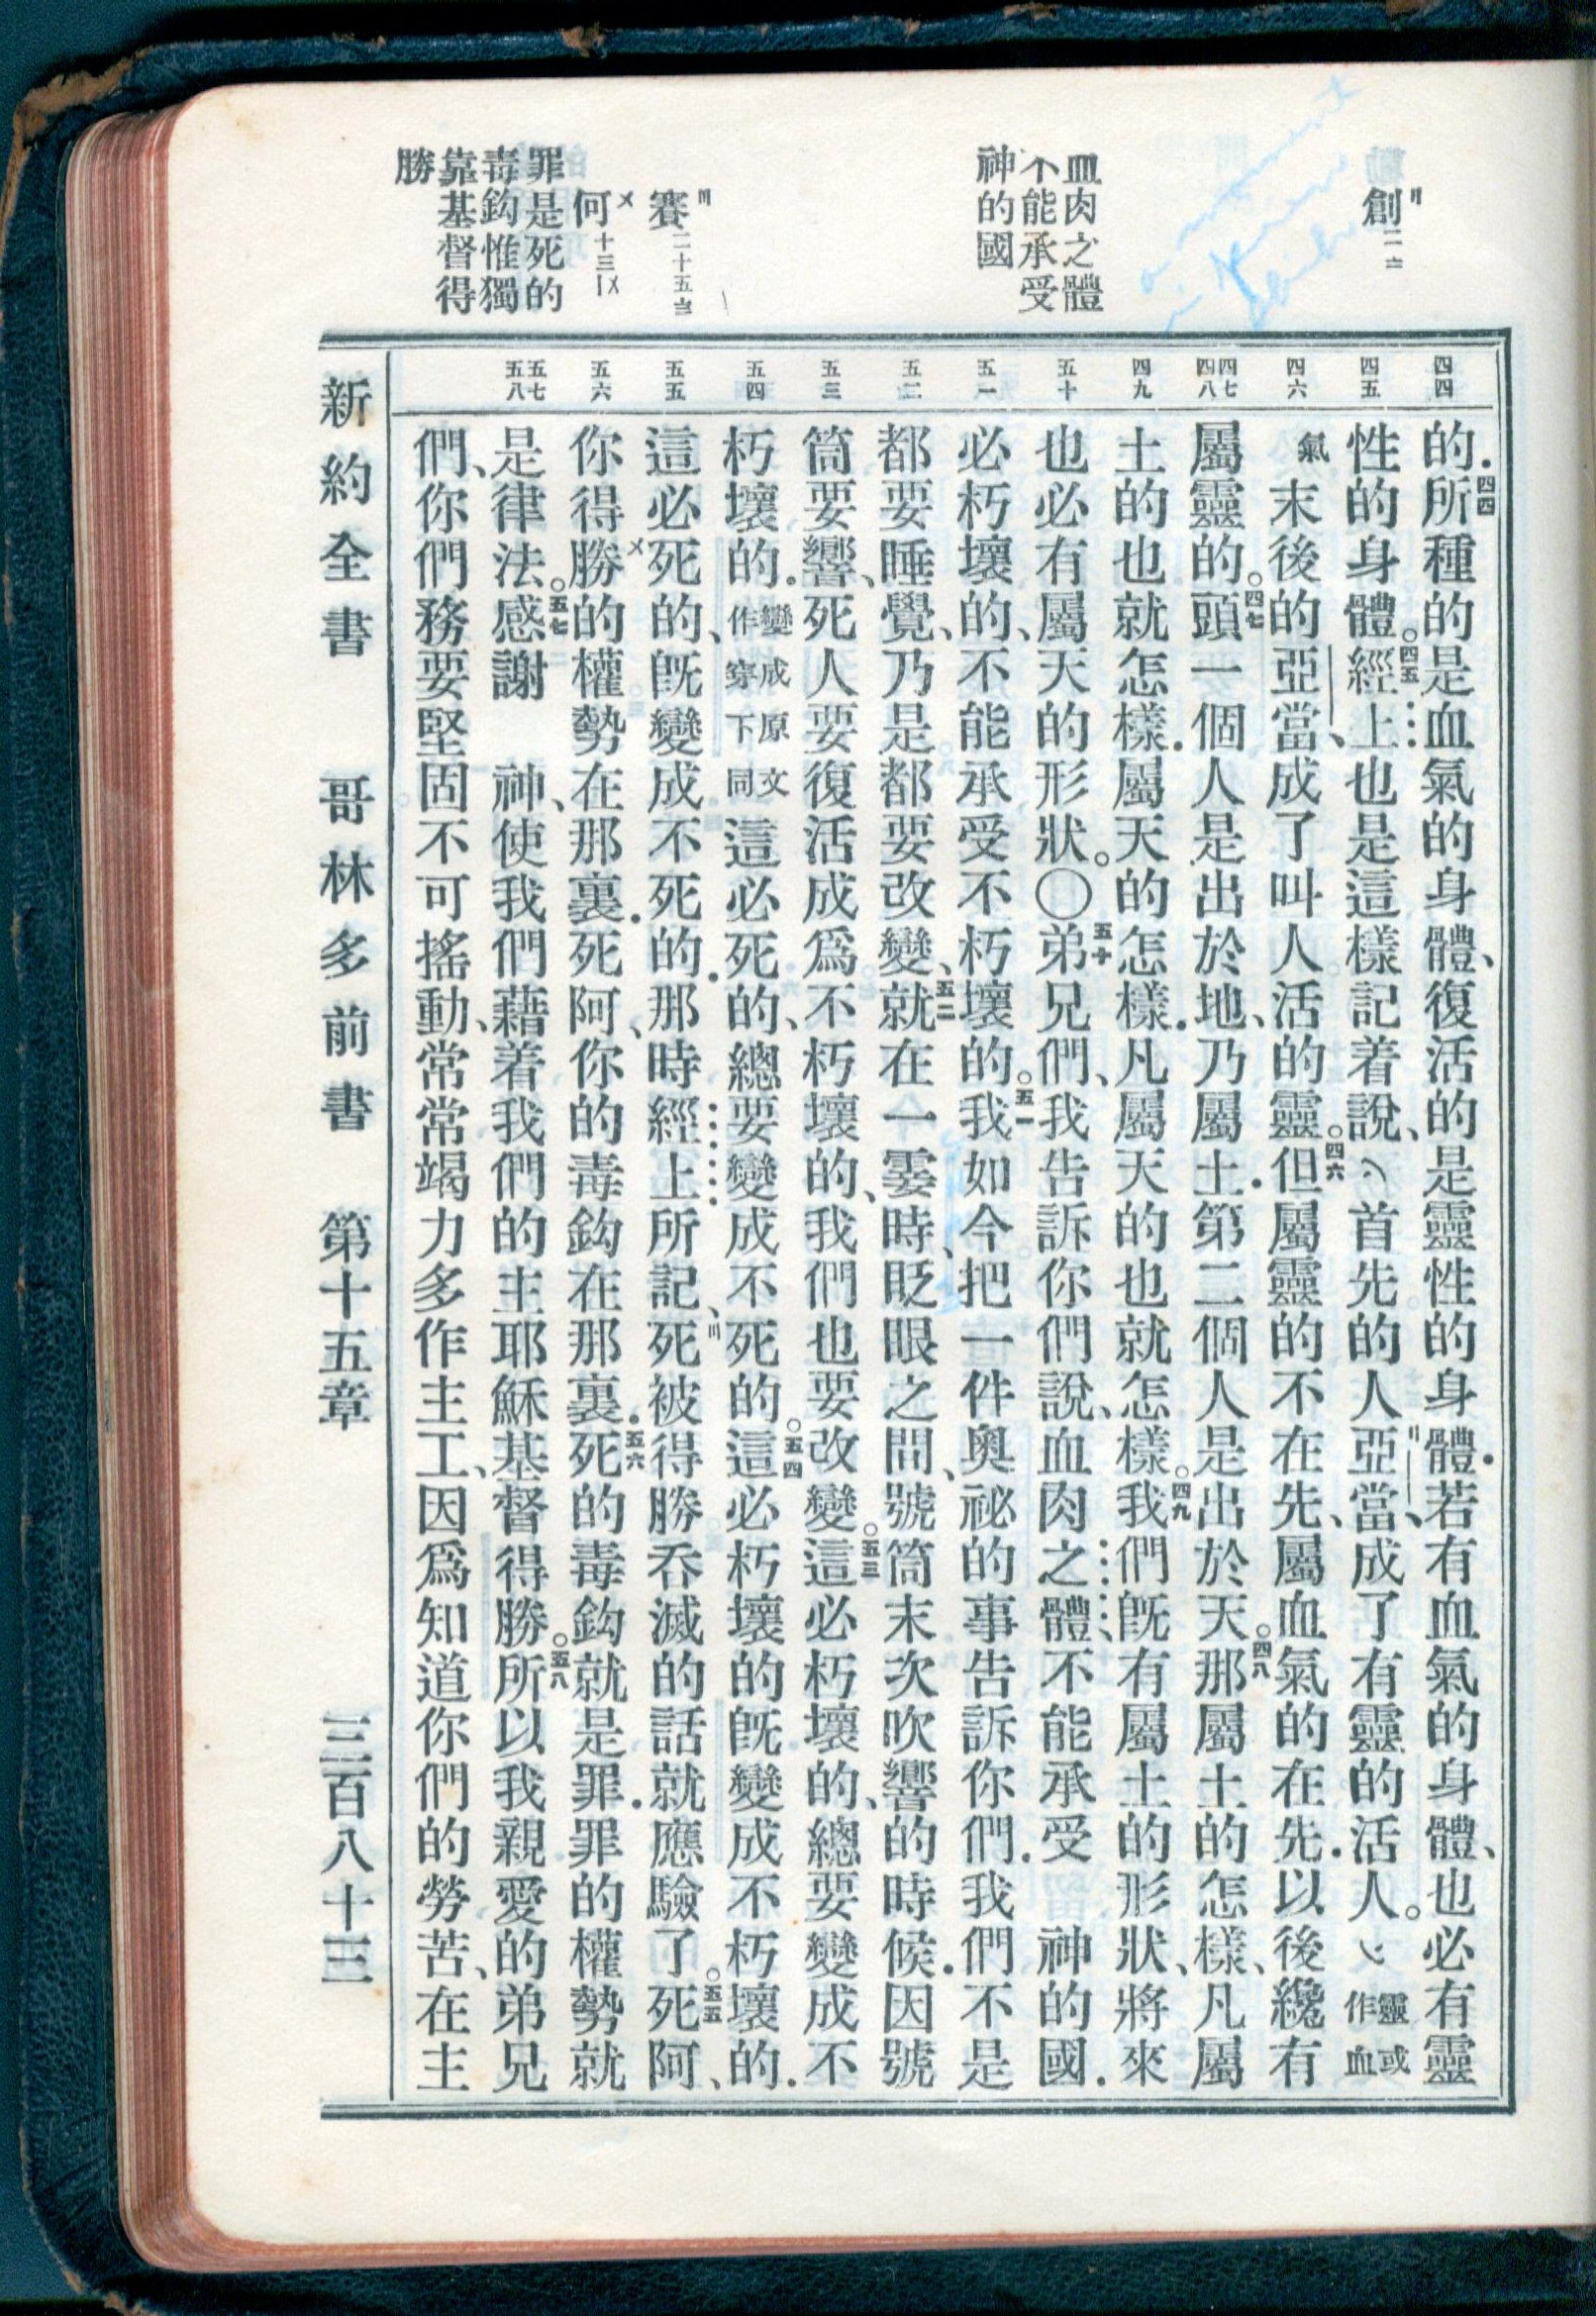 創二七
血肉之體
不能承受
神的國
賽二十五八
何十三14
罪是死的
毒鈎惟獨
靠基督得
勝
四四
四五
四六
四七
四八
四九
五十
五一
五二
五三
五四
五五
五六
五七
五八
的.四四所種的是血氣的身體、復活的是靈性的身體.若有血氣的身體、也必有靈
性的身體。四五經上也是這樣記着說、首先的人亞當、成了有靈的活人。靈或作血
氣末後的亞當、成了叫人活的靈。四六但屬靈的不在先、屬血氣的在先.以後纔有
屬靈的。四七頭一個人是出於地、乃屬土.第二個人是出於天。四八那屬土的怎樣、凡屬
土的也就怎樣.屬天的怎樣.凡屬天的也就怎樣。四九我們旣有屬土的形狀、將來
也必有屬天的形狀。〇五十弟兄們、我告訴你們說、血肉之體不能承受 神的國.
必朽壞的、不能承受不朽壞的。五一我如今把一件奧祕的事告訴你們.我們不是
都要睡覺、乃是都要改變、五二就在一霎時、眨眼之間、號筒末次吹響的時候.因號
筒要響、死人要復活成爲不朽壞的、我們也要改變。五三這必朽壞的、總要變成不
朽壞的.變成原文作穿下同這必死的、總要變成不死的。五四這必朽壞的旣變成不朽壞的.
這必死的、旣變成不死的.那時經上所記、死被得勝吞滅的話就應驗了。五五死阿、
你得勝的權勢在那裏.死阿、你的毒鈎在那裏.五六死的毒鈎就是罪.罪的權勢就
是律法。五七感謝 神、使我們藉着我們的主耶穌基督得勝。五八所以我親愛的弟兄
們、你們務要堅固不可搖動、常常竭力多作主工、因爲知道你們的勞苦、在主
新約全書 哥林多前書 第十五章 三百八十三